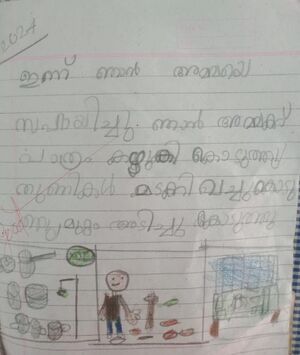 2024
ഇന്ന് ഞാൻ അമ്മയെ
സഹായിച്ചു. ഞാൻ അമ്മക്ക്
പാത്രം കഴുകി കൊടുത്തു
തുണികൾ മടക്കി വച്ചു
അടിച്ചു കൊടുത്തു